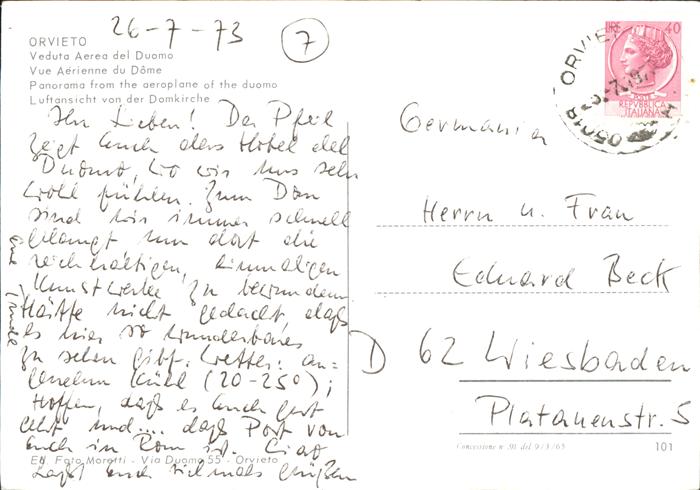 26-7-73 7
ORVIETO
Veduta Aerea del Duomo
Vue Aérienne du Dôme
Panorama from the aeroplane of the duomo
Luftansicht von der Domkirche
Ihr Lieben! Der Pfeil
zeigt Euch das Hotel del
Duomo, wo wir uns sehr
wohl fühlen. Zum Dom
sind wir immer schnell
gelangt um dort die
reichhaltigen, einmaligen
Kunstwerke zu bewundern.
Hätte nicht gedacht, daß
es hier so wunderbares
zu sehen gibt. Wetter: an-
genehm kühl (20-25°);
Hoffen, daß es Euch gut
geht und.... daß Post von
Euch in Rom ist. Ciao
Laßt Euch vielmals grüßen
Eure
Ed. Foto Moretti - Via Duomo 55 - Orvieto
LIRE 40
POSTE
REPVBBLICA
ITALIANA
ORVIETO
05018
Germania
Herrn u. Frau
Eduard Beck
D 62 Wiesbaden
Platanenstr. 5
Concessione n. 91 del 9/3/65
101